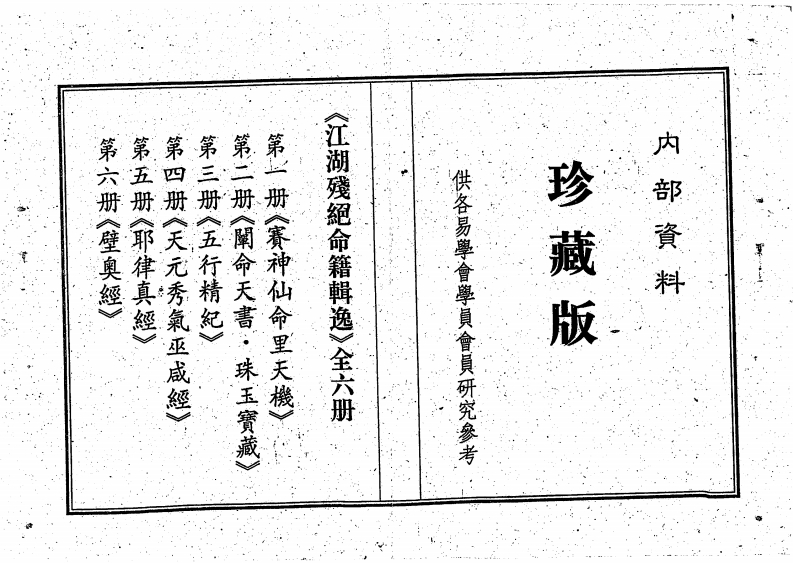 内部資料
珍藏版
供各易學會學員會員研究參考
《江湖殘絕命籍輯逸》全六册
第一册《賽神仙命里天機》
第二册《闡命天書·珠玉寶藏》
第三册《五行精紀》
第四册《天元秀氣巫咸經》
第五册《耶律真經》
第六册《壁奧經》